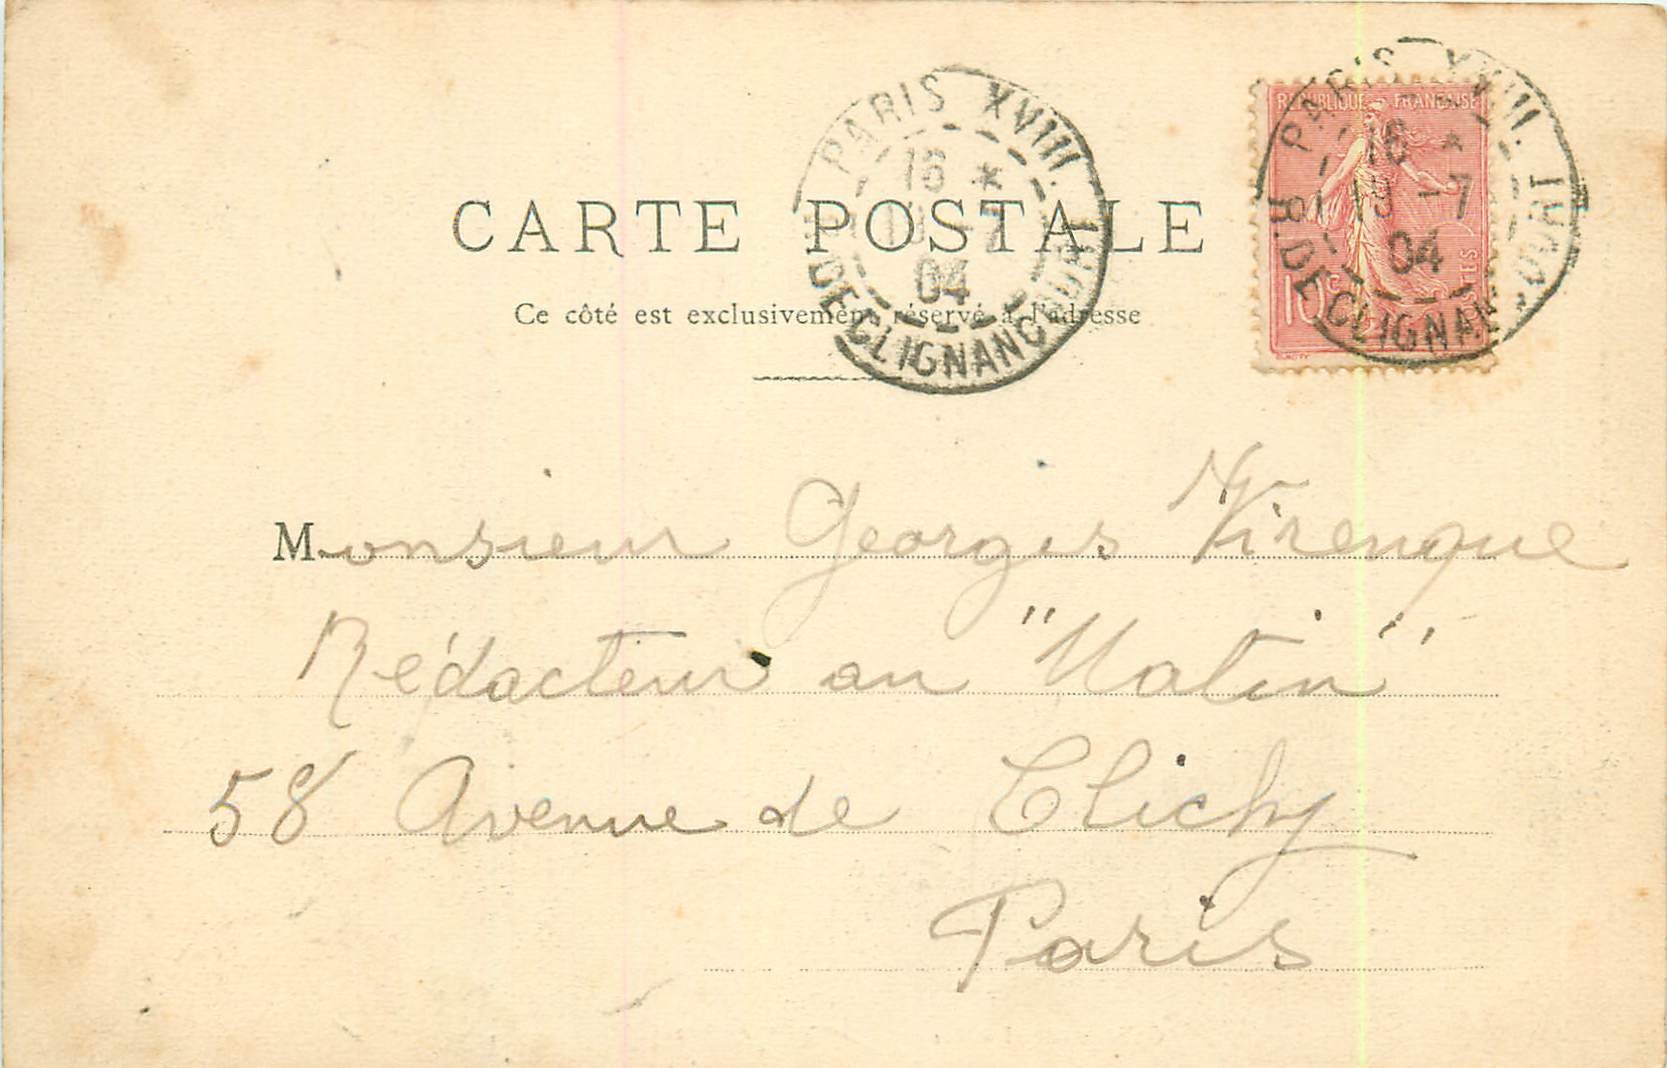 CARTE POSTALE
Ce côté est exclusivement réservé à l'adresse
PARIS XVIII.
16 *
19 -7
04
R. DE CLIGNANCOURT
REPUBLIQUE FRANCAISE
10c
POSTES
PARIS XVIII.
16 *
19 -7
04
R. DE CLIGNANCOURT
Monsieur Georges Virenque
Rédacteur au "Matin"
58 Avenue de Clichy
Paris